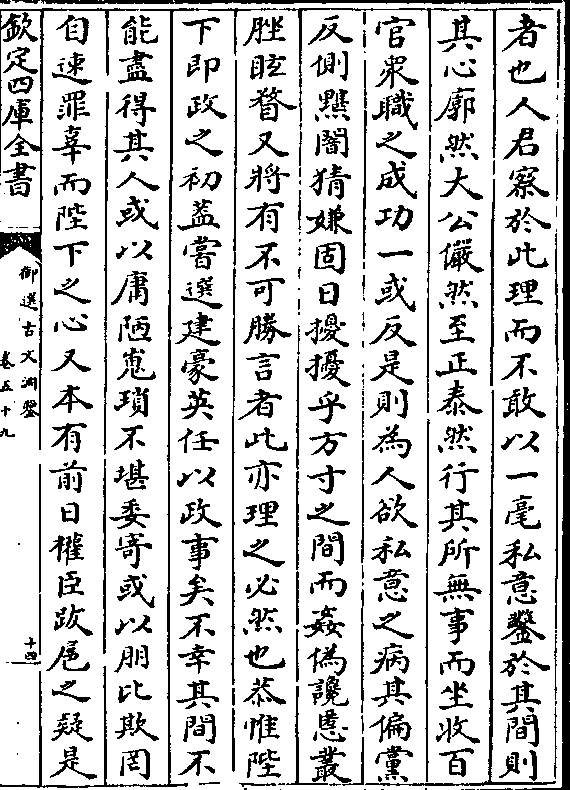 者也人君察於此理而不敢以一毫私意鑿於其間則
其心廓然大公儼然至正泰然行其所無事而坐收百
官衆職之成功一或反是則為人欲私意之病其偏黨
反側黮闇猜嫌固日擾擾乎方寸之間而姦偽讒慝叢
脞眩瞀又將有不可勝言者此亦理之必然也恭惟陛
下即政之初葢嘗選建豪英任以政事矣不幸其間不
能盡得其人或以庸陋嵬瑣不堪委寄或以朋比欺罔
自速罪辜而陛下之心又本有前日權臣跋扈之疑是
欽定四庫全書
御選古文淵鑒
卷五十九
十四